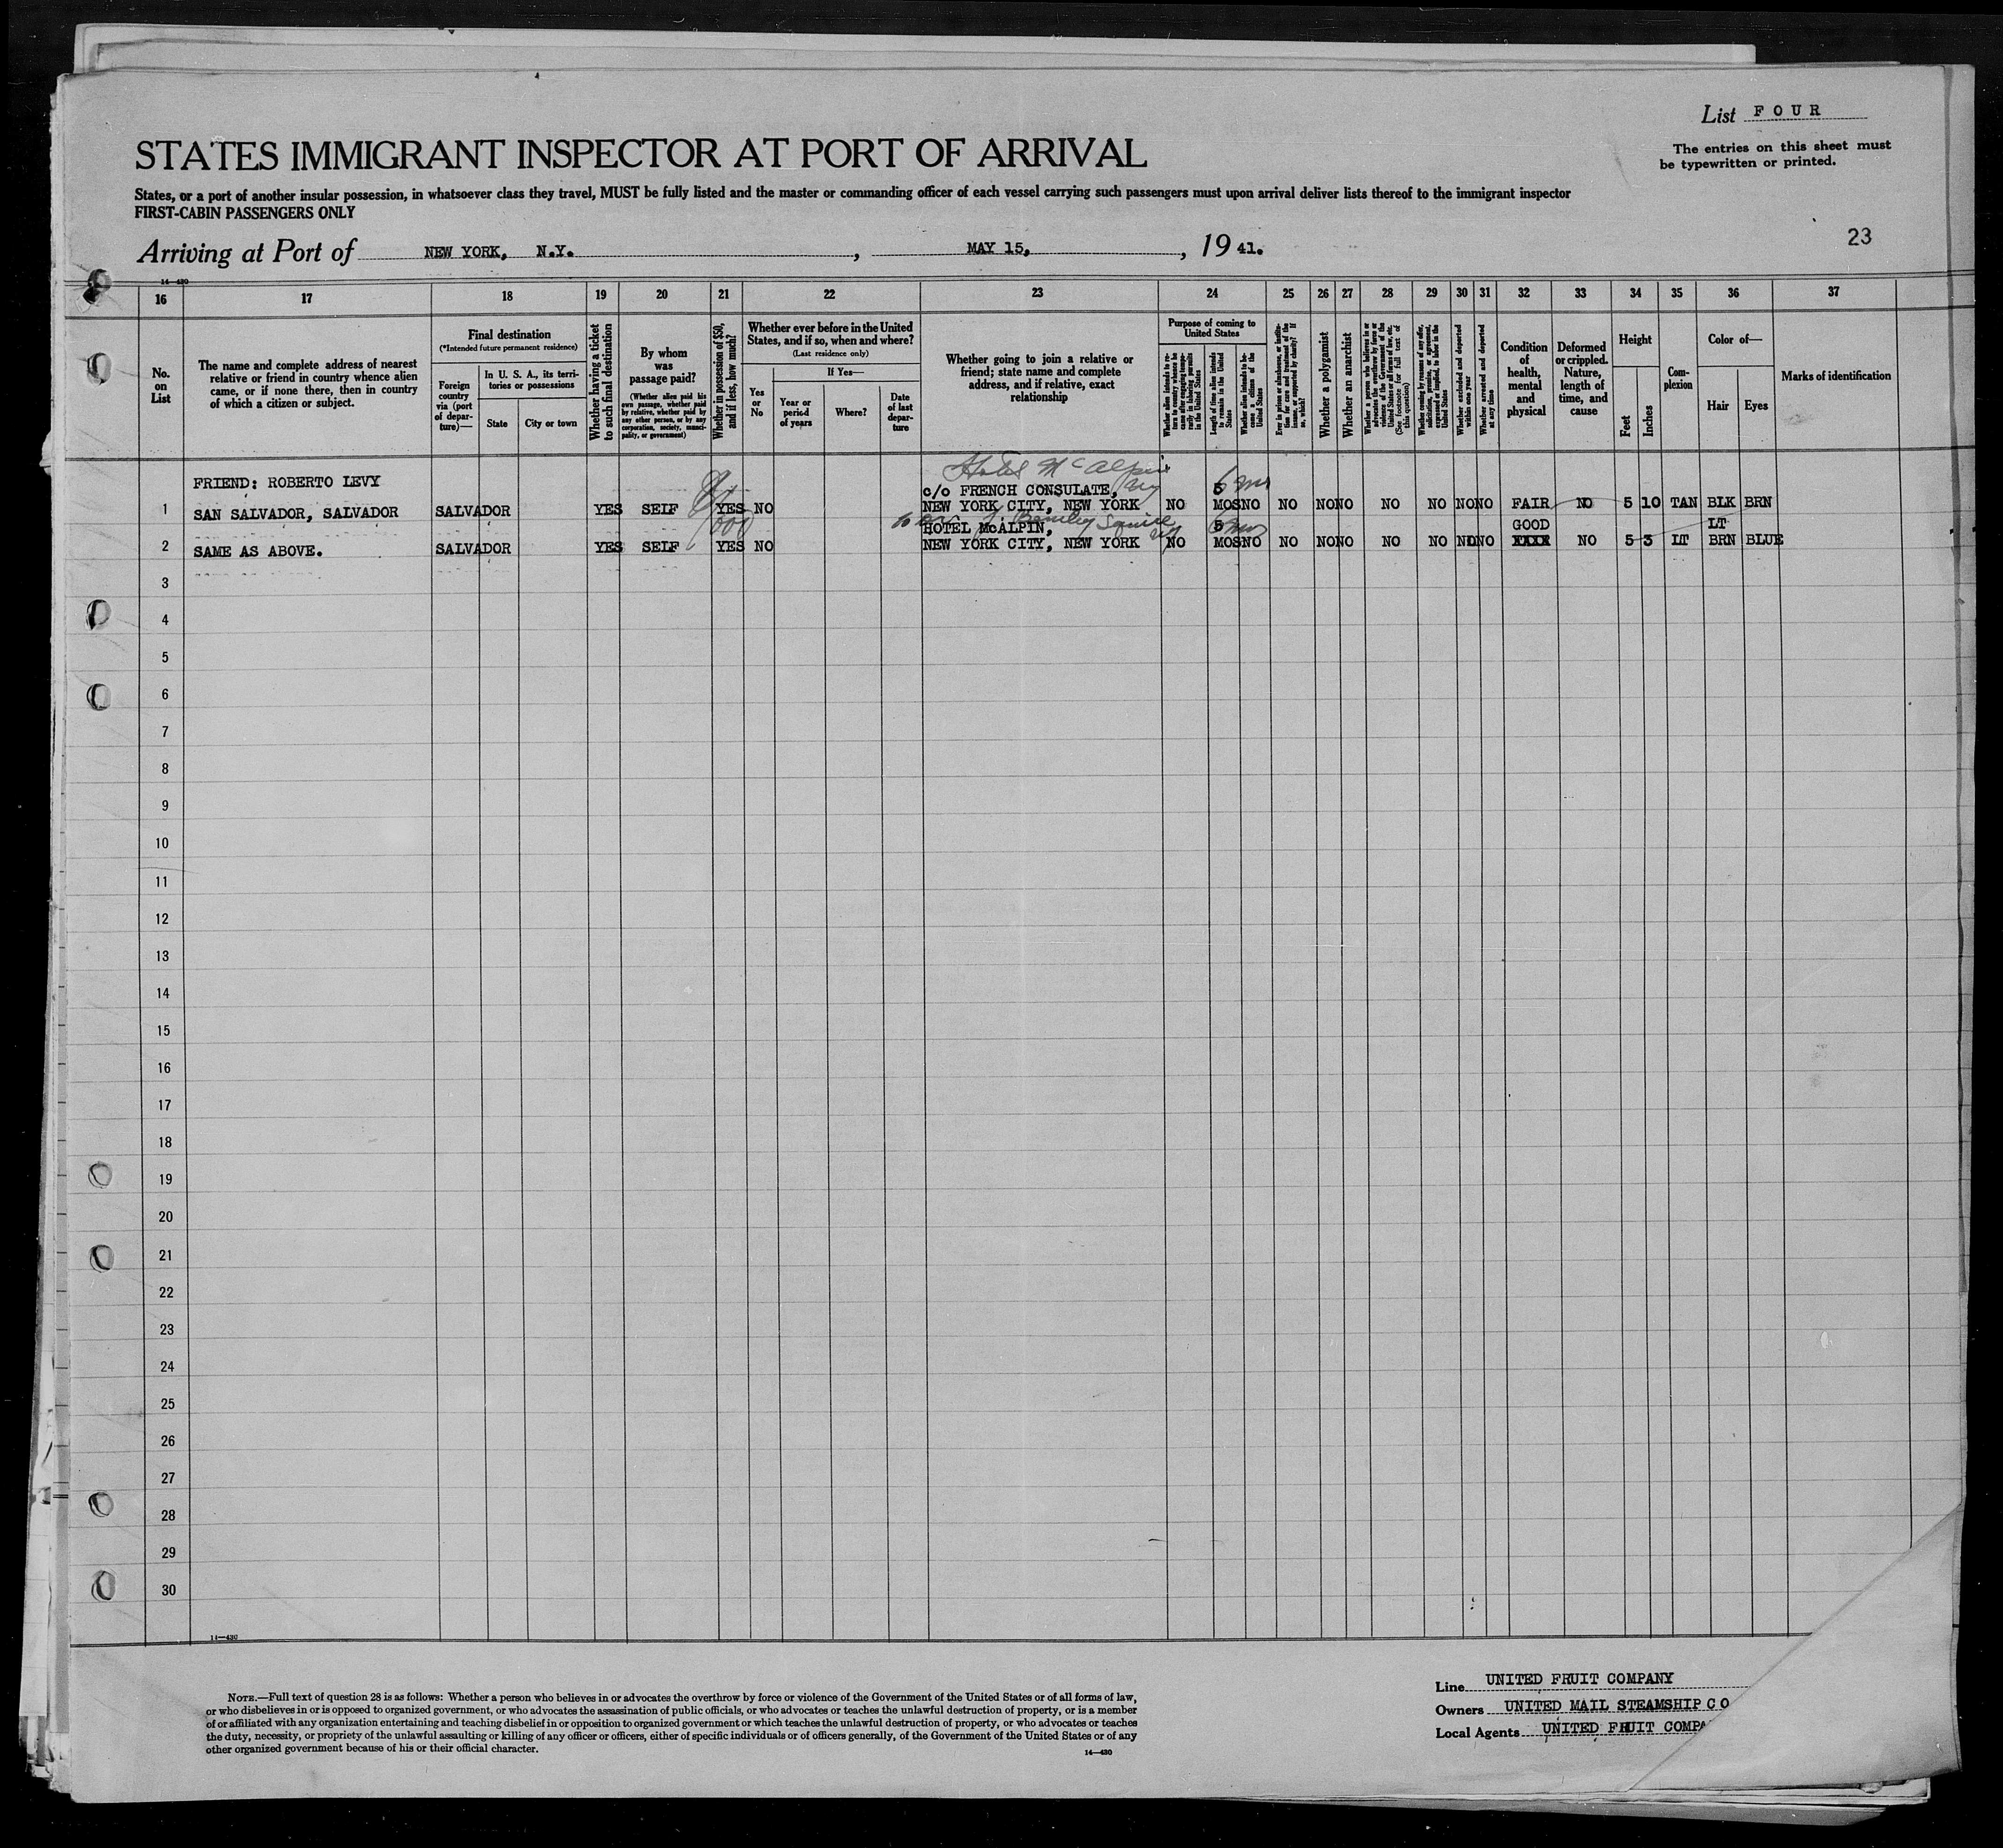 List FOUR
STATES IMMIGRANT INSPECTOR AT PORT OF ARRIVAL
The entries on this sheet must
be typewritten or printed.
States, or a port of another insular possession, in whatsoever class they travel, MUST be fully listed and the master or commanding officer of each vessel carrying such passengers must upon arrival deliver lists thereof to the immigrant inspector
FIRST-CABIN PASSENGERS ONLY
Arriving at Port of NEW YORK, N.Y., MAY 15, 19 41.
23
14-430
16 17 18 19 20 21 22 23 24 25 26 27 28 29 30 31 32 33 34 35 36 37
No.
on
List
The name and complete address of nearest
relative or friend in country whence alien
came, or if none there, then in country
of which a citizen or subject.
Final destination
(*Intended future permanent residence)
Foreign
country
via (port
of depar-
ture)—
In U. S. A., its terri-
tories or possessions
State
City or town
Whether having a ticket
to such final destination
By whom
was
passage paid?
(Whether alien paid his
own passage, whether paid
by relative, whether paid by
any other person, or by any
corporation, society, munici-
pality, or government)
Whether in possession of $50,
and if less, how much?
Whether ever before in the United
States, and if so, when and where?
(Last residence only)
Yes
or
No
If Yes—
Year or
period
of years
Where?
Date
of last
depar-
ture
Whether going to join a relative or
friend; state name and complete
address, and if relative, exact
relationship
Purpose of coming to
United States
Whether alien intends to re-
turn to country whence he
came after engaging tempo-
rarily in laboring pursuits
in the United States
Length of time alien intends
to remain in the United
States
Whether alien intends to be-
come a citizen of the
United States
Ever in prison or almshouse, or institu-
tion for care and treatment of the
insane, or supported by charity? If
so, which?
Whether a polygamist
Whether an anarchist
Whether a person who believes in or
advocates the overthrow by force or
violence of the Government of the
United States or all forms of law, etc.
(See footnote for full text of
this question)
Whether coming by reason of any offer,
solicitation, promise, or agreement,
expressed or implied, to labor in the
United States
Whether excluded and deported
within one year
Whether arrested and deported
at any time
Condition
of
health,
mental
and
physical
Deformed
or crippled.
Nature,
length of
time, and
cause
Height
Feet
Inches
Com-
plexion
Color of—
Hair
Eyes
Marks of identification
Hotel McAlpin
FRIEND: ROBERTO LEVY
c/o FRENCH CONSULATE, NY 5 6 mos
1 SAN SALVADOR, SALVADOR SALVADOR YES SELF YES NO NEW YORK CITY, NEW YORK NO MOS NO NO NO NO NO NO NO NO FAIR NO 5 10 TAN BLK BRN
1000
HOTEL McALPIN, 5 6 mos GOOD LT
2 SAME AS ABOVE. SALVADOR YES SELF YES NO NEW YORK CITY, NEW YORK NO MOS NO NO NO NO NO NO NO NO XXXX NO 5 3 LT BRN BLUE
3
4
5
6
7
8
9
10
11
12
13
14
15
16
17
18
19
20
21
22
23
24
25
26
27
28
29
30
14-430
NOTE.—Full text of question 28 is as follows: Whether a person who believes in or advocates the overthrow by force or violence of the Government of the United States or of all forms of law,
or who disbelieves in or is opposed to organized government, or who advocates the assassination of public officials, or who advocates or teaches the unlawful destruction of property, or is a member
of or affiliated with any organization entertaining and teaching disbelief in or opposition to organized government or which teaches the unlawful destruction of property, or who advocates or teaches
the duty, necessity, or propriety of the unlawful assaulting or killing of any officer or officers, either of specific individuals or of officers generally, of the Government of the United States or of any
other organized government because of his or their official character.
14-430
Line UNITED FRUIT COMPANY
Owners UNITED MAIL STEAMSHIP CO
Local Agents UNITED FRUIT COMPA